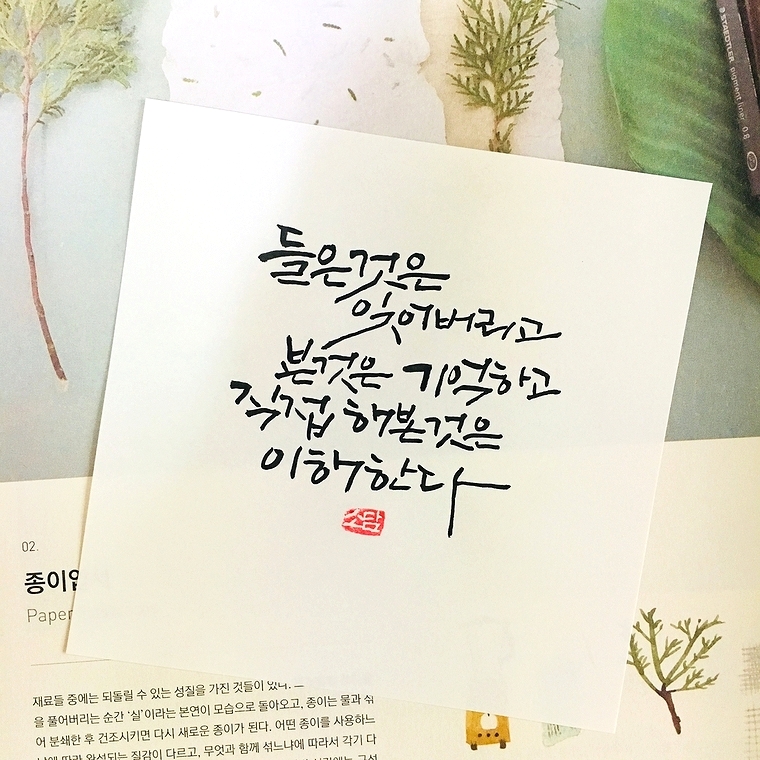 STAEDTLER pigment liner 0.8
들은것은
잊어버리고
본것은 기억하고
직접 해본것은
이해한다
소담
02.
종이
Paper
재료들 중에는 되돌릴 수 있는 성질을 가진 것들이 있다.
을 풀어버리는 순간 '실'이라는 본연의 모습으로 돌아오고, 종이는 물과 섞
어 분쇄한 후 건조시키면 다시 새로운 종이가 된다. 어떤 종이를 사용하느
냐에 따라 완성되는 질감이 다르고, 무엇과 함께 섞느냐에 따라서 각기 다